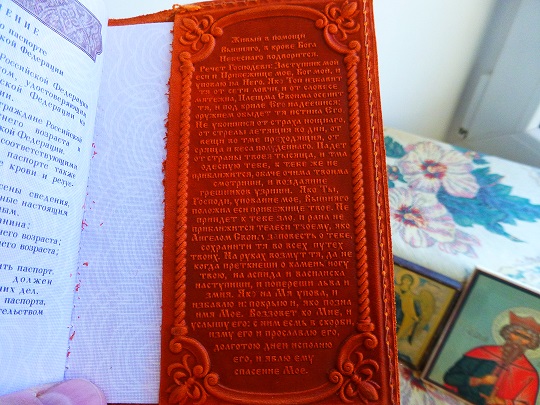 ЕНИЕ
о паспорте
ской Федерации
Российской Федерации
том, удостоверяющим
ской Федерации на
Федерации.
граждане Российской
него возраста и
кой Федерации.
соответствующими
паспорте также
е крови и резус-
сены сведения,
ные настоящим
ным.
него возраста;
него возраста;
ить паспорт.
должен
них дел.
паспорта,
тельством
Живый в помощи
Вышняго, в крове Бога
Небеснаго водворится.
Речет Господеви: Заступник мой
еси и Прибежище мое, Бог мой, и
уповаю на Него. Яко Той избавит
тя от сети ловчи и от словесе
мятежна, Плещма Своима осенит
тя, и под криле Его надеешися:
оружием обыдет тя истина Его.
Не убоишися от страха нощнаго,
от стрелы летящия во дни, от
вещи во тме преходящия, от
сряща и беса полуденнаго. Падет
от страны твоея тысяща, и тма
одесную тебе, к тебе же не
приближится, обаче очима твоима
смотриши, и воздаяние
грешников узриши. Яко Ты,
Господи, упование мое, Вышняго
положил еси прибежище твое. Не
приидет к тебе зло, и рана не
приближится телеси твоему, яко
Ангелом Своим заповесть о тебе,
сохранити тя во всех путех
твоих. На руках возмут тя, да не
когда преткнеши о камень ногу
твою, на аспида и василиска
наступиши, и попереши льва и
змия. Яко на Мя упова, и
избавлю и: покрыю и, яко позна
имя Мое. Воззовет ко Мне, и
услышу его: с ним есмь в скорби,
изму его и прославлю его,
долготою дней исполню
его, и явлю ему
спасение Мое.